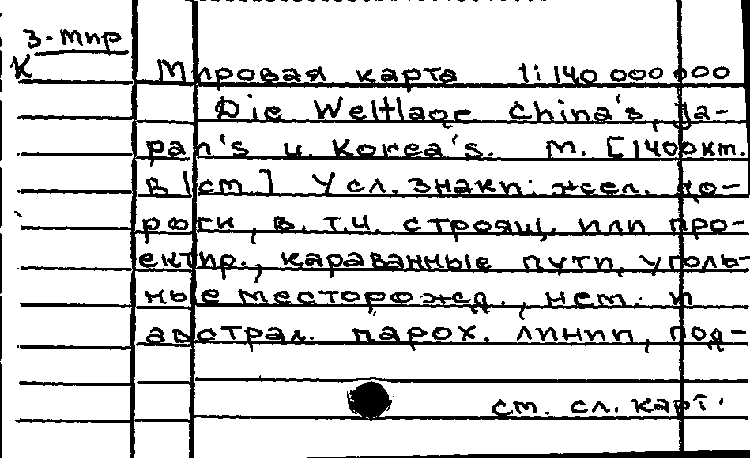 3-мир
К
Мировая карта 1:140 000 000
Die Weltlage China's, Ja-
pan's u. Korea's. М. [1400км.
в 1см.] Усл. знаки: жел. до-
роги, в т.ч. строящ. или про-
ектир., караванные пути, уголь-
ные месторожд., нем. и
австрал. парох. линии, под-
см. сл. карт.